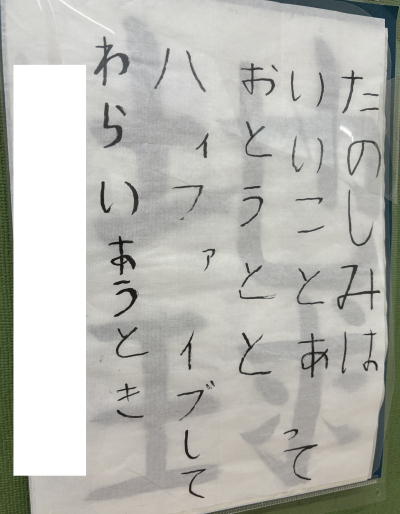 たのしみは
いいことあって
おとうとと
ハィファイブして
わらいあうとき